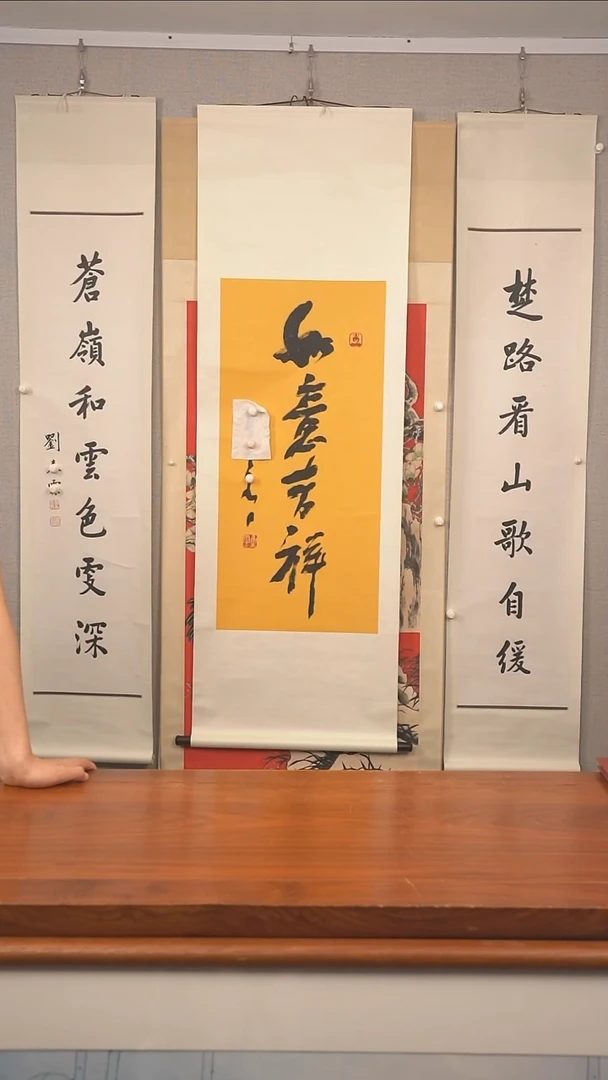 楚路看山歌自緩
如意吉祥
蒼嶺和雲色雯深
劉